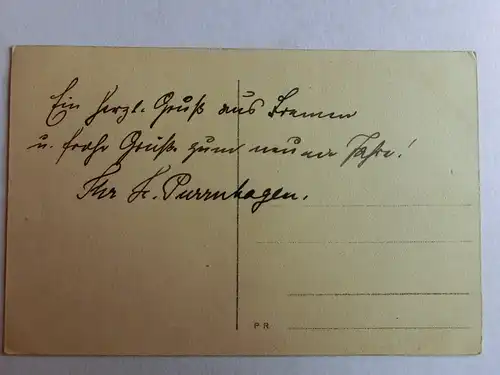 Ein herzl. Gruß aus Bremen
u. frohe Grüße zum neuen Jahre!
Ihr Fr. Purrnhagen.
P R